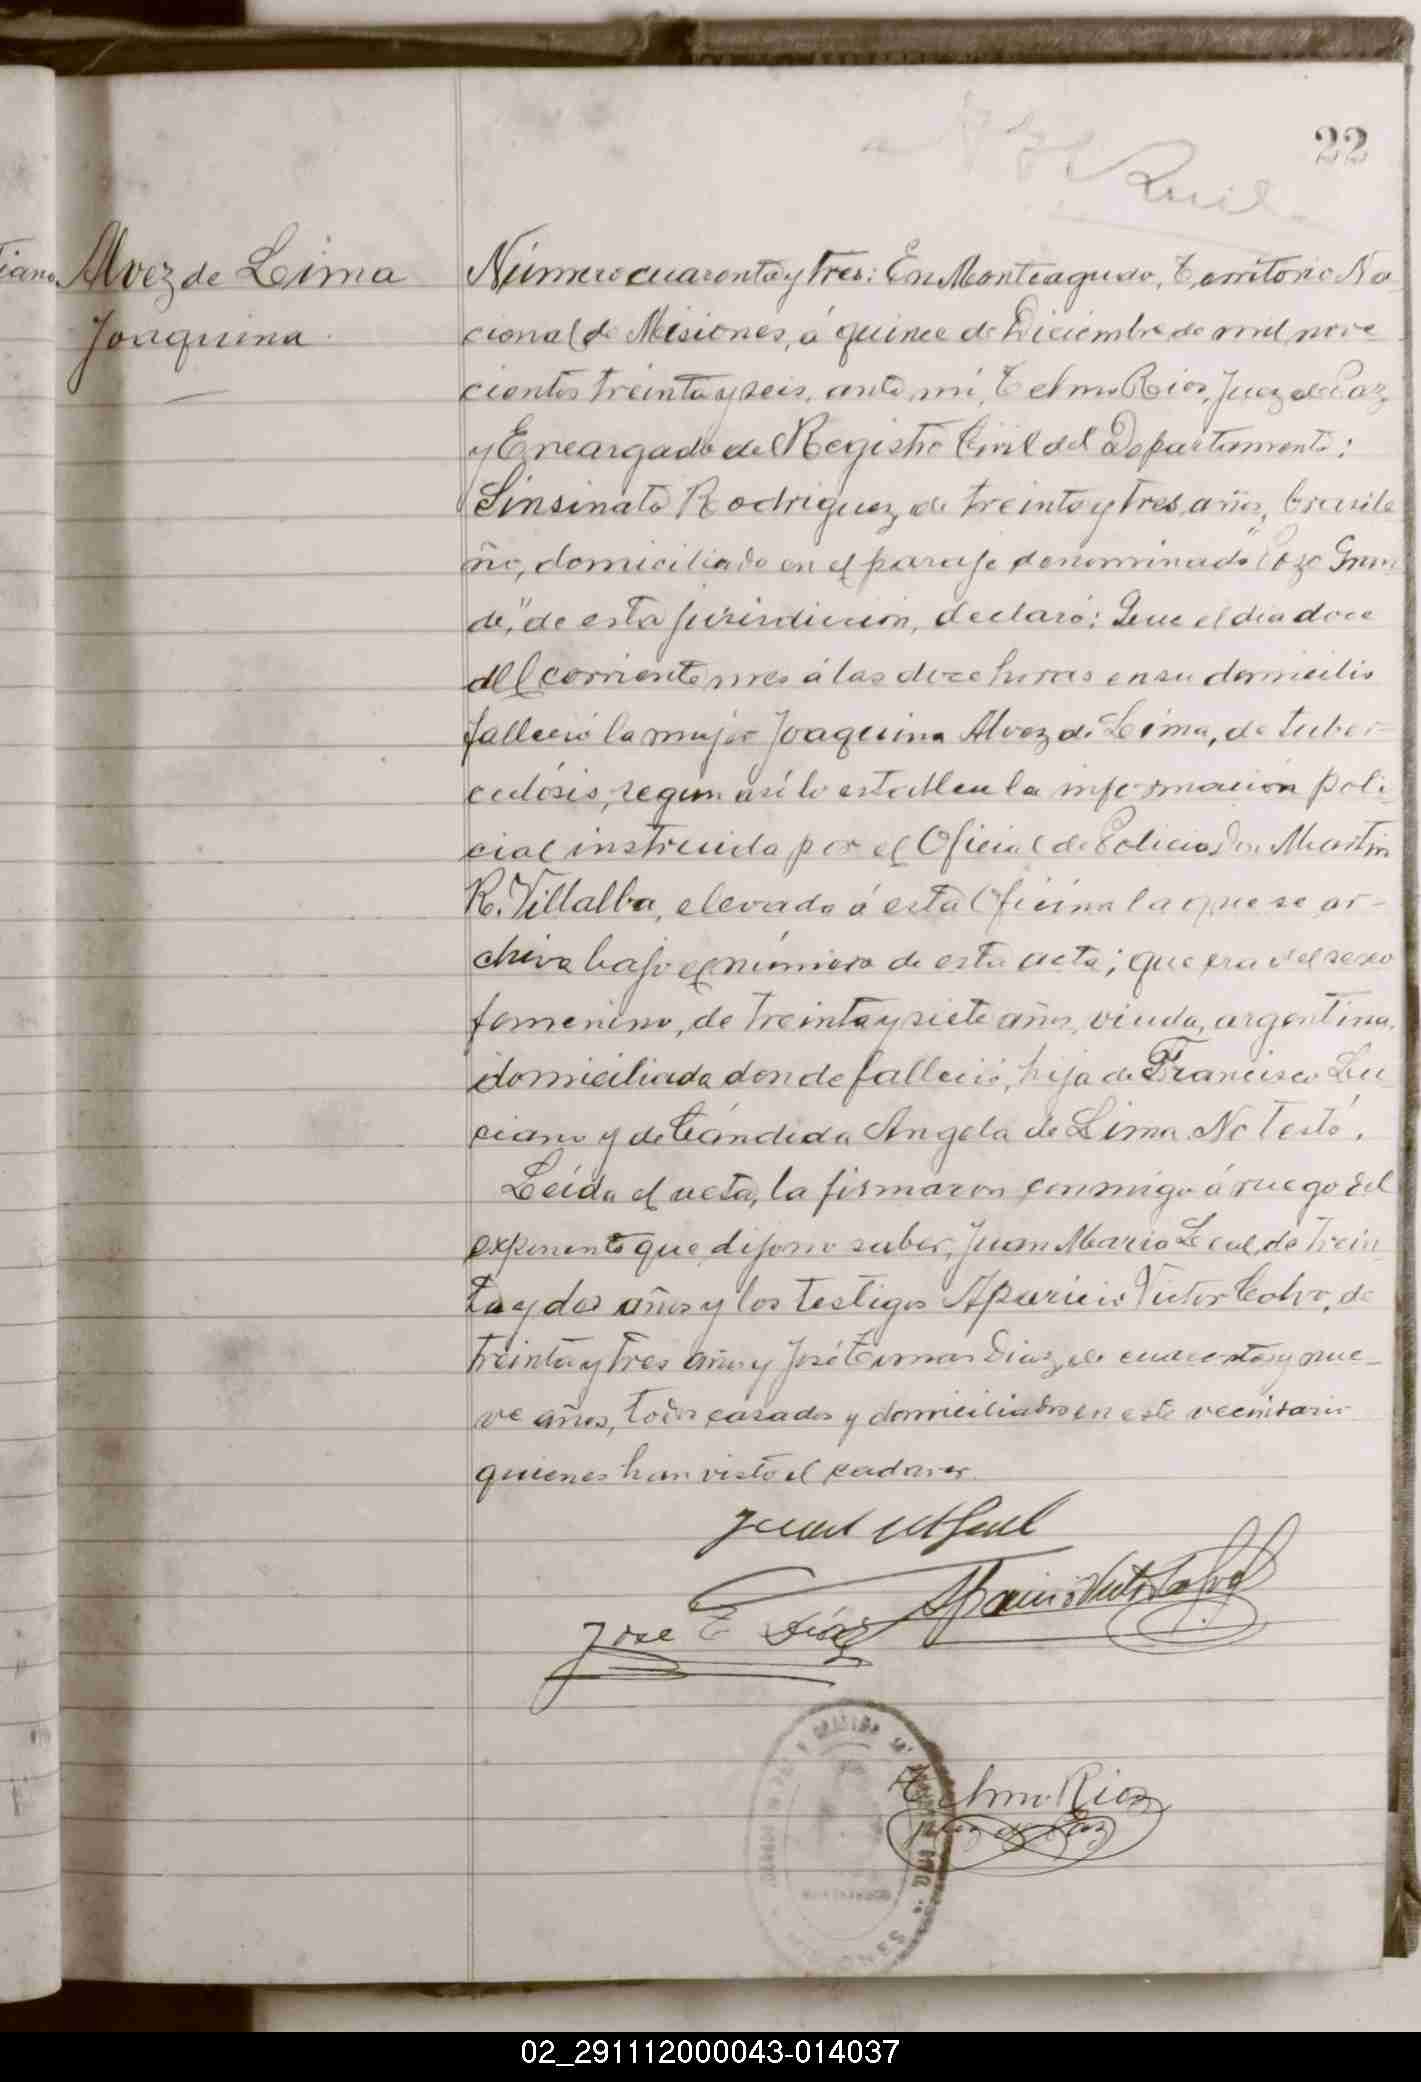 22
Alvez de Lima
Joaquina
Número cuarenta y tres: En Monteagudo, Territorio Na
cional de Misiones, á quince de Diciembre de mil nove
cientos treinta y seis, ante mí, Telmo Rios, Juez de Paz
y Encargado del Registro Civil del Departamento:
Sinsinato Rodriguez, de treinta y tres años, brasile
ño, domiciliado en el paraje denominado "Pozo Gran
de," de esta jurisdicción, declaró: Que el dia doce
del corriente mes á las doce horas en su domicilio
falleció la mujer Joaquina Alvez de Lima, de tuber-
culósis, según así lo establece la información poli-
cial instruida por el Oficial de Policia Don Martin
R. Villalba, elevada á esta Oficina la que se ar-
chiva bajo el número de esta acta; que era del sexo
femenino, de treinta y siete años, viuda, argentina,
domiciliada donde falleció, hija de Francisco Lu
ciano y de Cándida Angela de Lima. No testó.
Leída el acta, la firmaron conmigo á ruego del
exponente que dijo no saber, Juan Maria Leal, de trein
ta y dos años y los testigos Aparicio Victor Calvo, de
treinta y tres años y José Diaz, de cuarenta y nue-
ve años, todos casados y domiciliados en este vecindario
quienes han visto el cadaver.
Juan M Leal
Aparicio Victor Calvo
Jose E Díaz
Telmo Rios
Juez de Paz
MISIONES
02_291112000043-014037